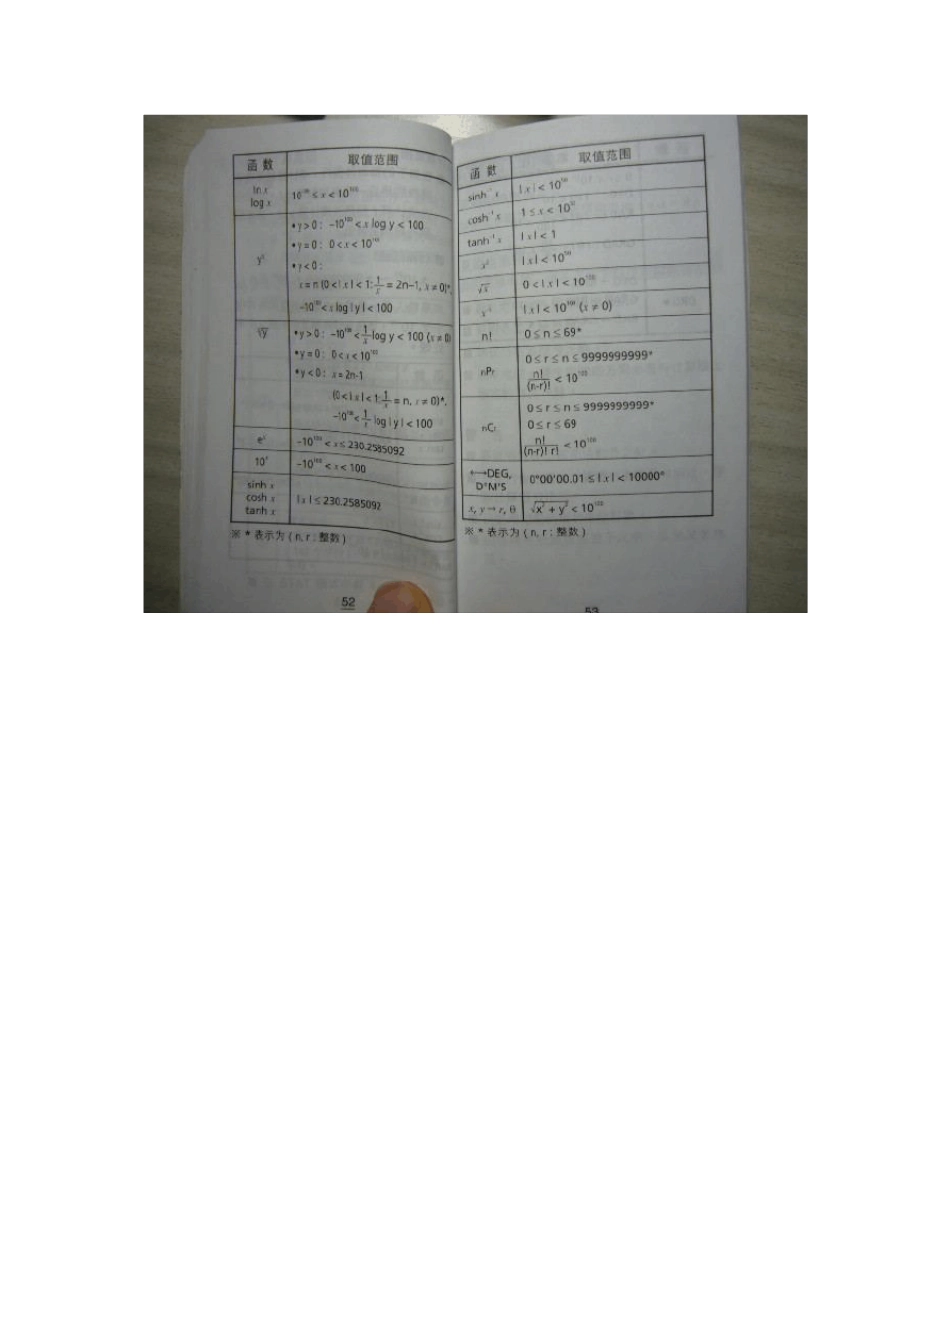 函数 取值范围
ln x
log x
10⁻⁹⁹ < x < 10¹⁰⁰
yˣ
•y>0: −10¹⁰⁰ < x log y < 100
•y=0: 0<x<10¹⁰⁰
•y<0:
x=n (0<|x|<1: 1/x = 2n−1, x≠0)*,
−10¹⁰⁰<x log|y|<100
ˣ√y
•y>0: −10¹⁰⁰ < 1/x log y < 100 (x≠0)
•y=0: 0<x<10¹⁰⁰
•y<0: x=2n-1
(0<|x|<1: 1/x = n, x≠0)*,
−10¹⁰⁰ < 1/x log|y|<100
eˣ −10¹⁰⁰ < x ≤ 230.2585092
10ˣ −10¹⁰⁰ < x < 100
sinh x
cosh x
tanh x
|x| ≤ 230.2585092
※ * 表示为 ( n, r : 整数 )
52
函数 取值范围
sinh⁻¹ x |x| < 10⁵⁰
cosh⁻¹ x 1 ≤ x < 10⁵⁰
tanh⁻¹ x |x| < 1
x² |x| < 10⁵⁰
√x 0<|x|<10¹⁰⁰
x⁻¹ |x| < 10¹⁰⁰ (x ≠ 0)
n! 0 ≤ n ≤ 69*
nPr
0 ≤ r ≤ n ≤ 9999999999*
n!/(n-r)! < 10¹⁰⁰
nCr
0 ≤ r ≤ n ≤ 9999999999*
0 ≤ r ≤ 69
n!/(n-r)! r! < 10¹⁰⁰
←→DEG,
D°M'S
0°00'00.01 ≤ |x| < 10000°
x, y → r, θ √x² + y² < 10¹⁰⁰
※ * 表示为 ( n, r : 整数 )
53